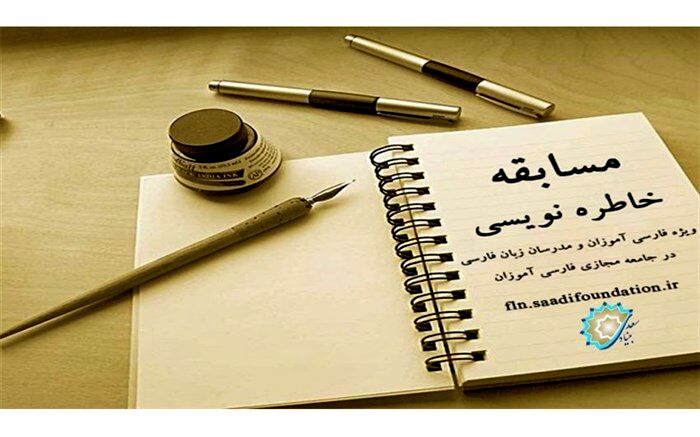 مسابقه
خاطره نویسی
ویژه فارسی آموزان و مدرسان زبان فارسی
در جامعه مجازی فارسی آموزان
fln.saadifoundation.ir
بنیاد سعدی
INDIA INK